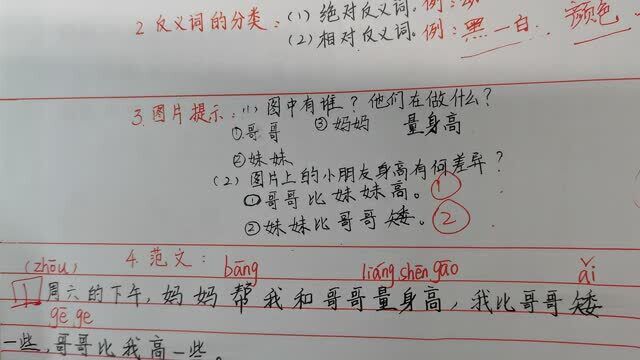 2 反义词的分类：(1) 绝对反义词。例：
(2) 相对反义词。例：黑一白. 颜色
3. 图片提示：(1) 图中有谁？他们在做什么？
①哥哥 ③妈妈 量身高
②妹妹
(2) 图片上的小朋友身高有何差异？
①哥哥比妹妹高。①
②妹妹比哥哥矮。②
4. 范文：
(zhōu) bāng liáng shēn gāo ǎi
1 周六的下午，妈妈帮我和哥哥量身高，我比哥哥矮
gē ge
一些，哥哥比我高一些。